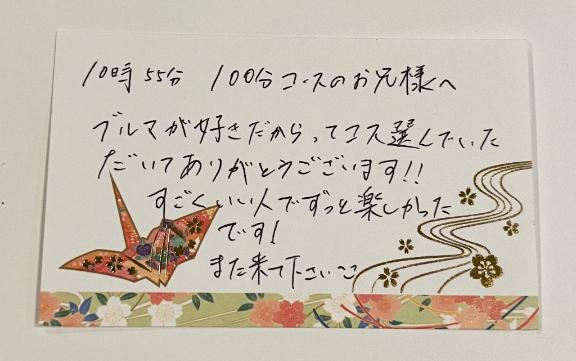 10時55分 100分コースのお兄様へ
ブルマが好きだからってコス選んでいた
だいてありがとうございます!!
すごくいい人でずっと楽しかった
です!
また来て下さい